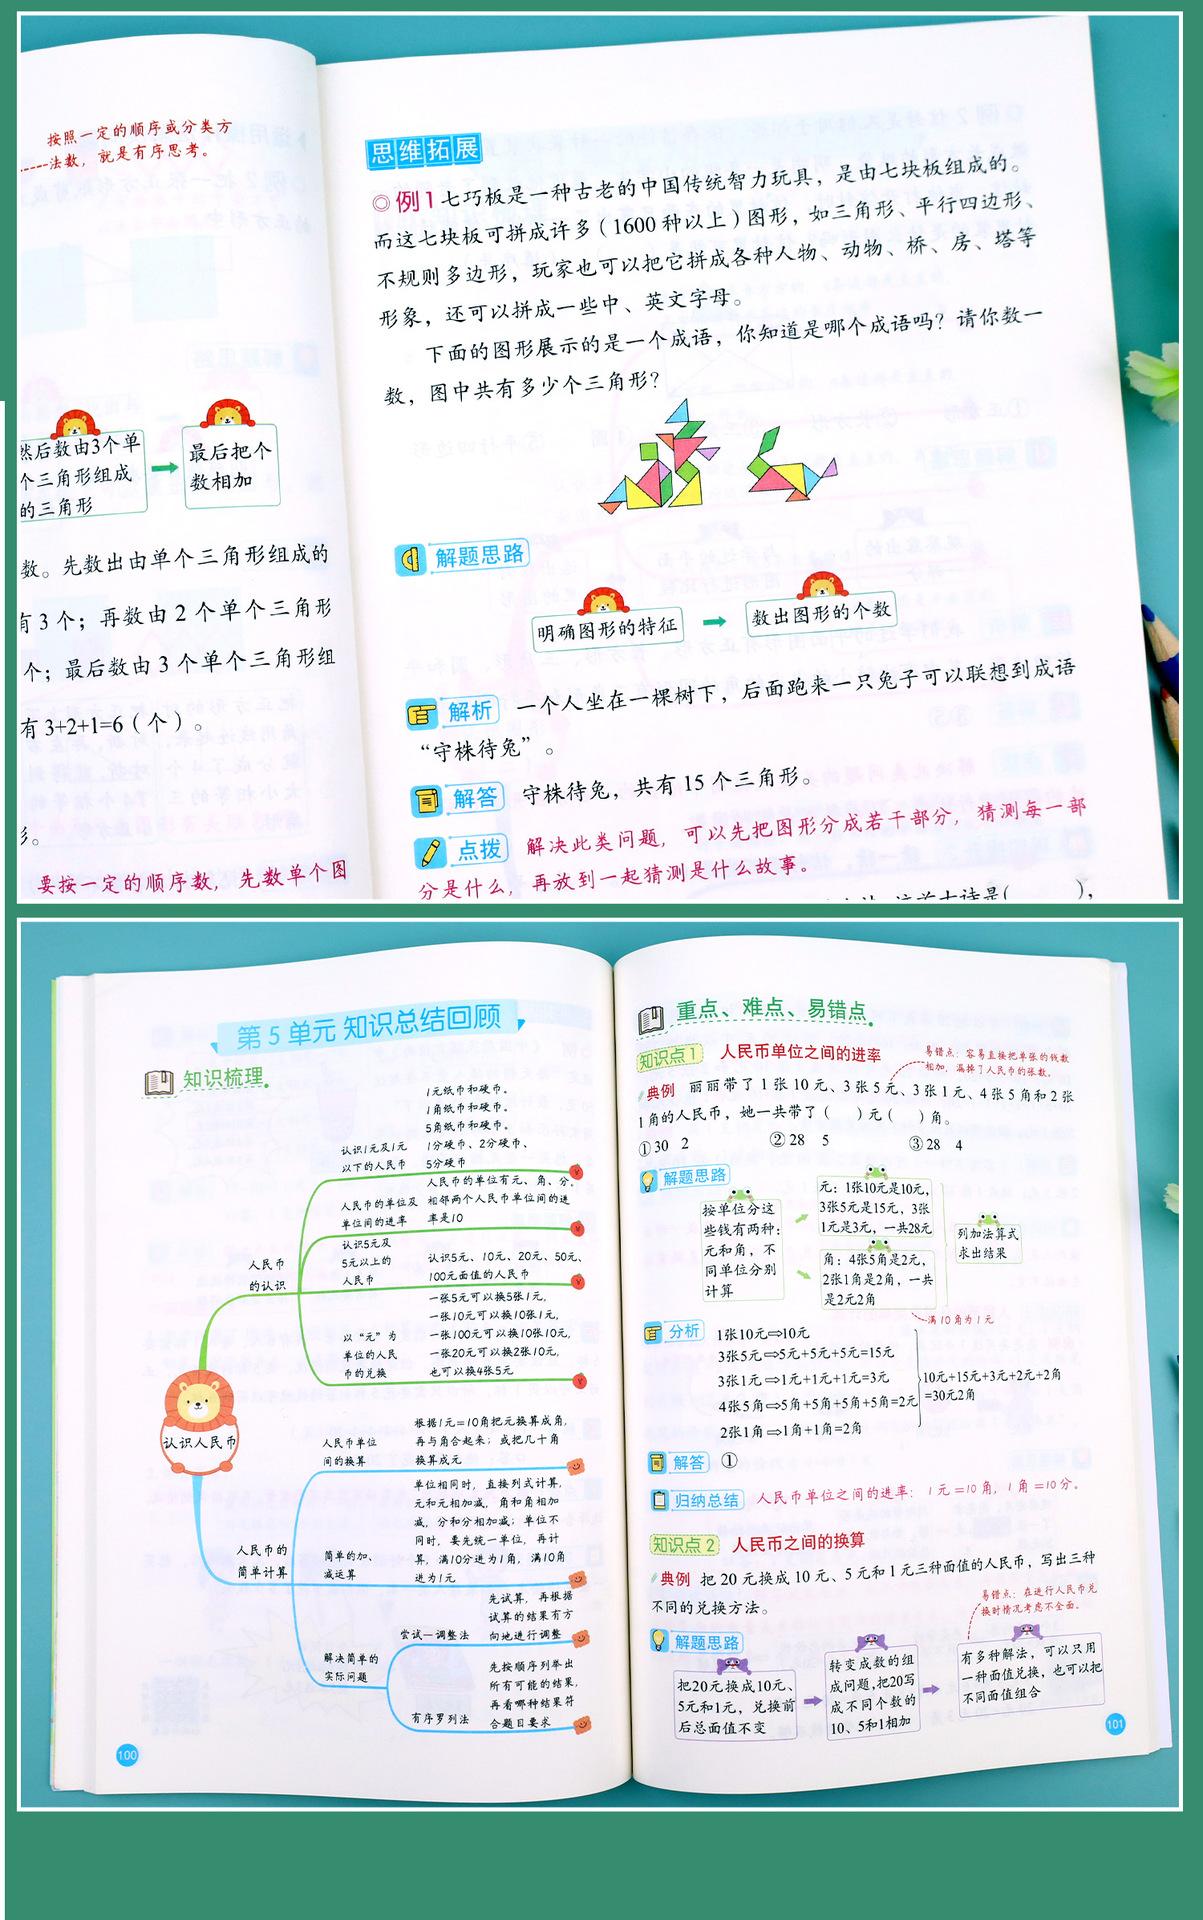 按照一定的顺序或分类方
法数，就是有序思考。
然后数由3个单
个三角形组成
的三角形
最后把个
数相加
数。先数出由单个三角形组成的
有3个；再数由2个单个三角形
个；最后数由3个单个三角形组
有3+2+1=6（个）。
形。
要按一定的顺序数，先数单个图
思维拓展
◎例1 七巧板是一种古老的中国传统智力玩具，是由七块板组成的。
而这七块板可拼成许多（1600种以上）图形，如三角形、平行四边形、
不规则多边形，玩家也可以把它拼成各种人物、动物、桥、房、塔等
形象，还可以拼成一些中、英文字母。
下面的图形展示的是一个成语，你知道是哪个成语吗？请你数一
数，图中共有多少个三角形？
解题思路
明确图形的特征
数出图形的个数
解析 一个人坐在一棵树下，后面跑来一只兔子可以联想到成语
“守株待兔”。
解答 守株待兔，共有15个三角形。
点拨 解决此类问题，可以先把图形分成若干部分，猜测每一部
分是什么，再放到一起猜测是什么故事。
第5单元 知识总结回顾
知识梳理
认识人民币
人民币
的认识
认识1元及1元
以下的人民币
1元纸币和硬币。
1角纸币和硬币。
5角纸币和硬币。
1分硬币、2分硬币、
5分硬币
人民币的单位及
单位间的进率
人民币的单位有元、角、分。
相邻两个人民币单位间的进
率是10
认识5元及
5元以上的
人民币
认识5元、10元、20元、50元、
100元面值的人民币
以“元”为
单位的人民
币的兑换
一张5元可以换5张1元，
一张10元可以换10张1元，
一张100元可以换10张10元，
一张20元可以换2张10元，
也可以换4张5元
人民币的
简单计算
人民币单位
间的换算
根据1元=10角把元换算成角，
再与角合起来；或把几十角
换算成元
简单的加、
减运算
单位相同时，直接列式计算，
元和元相加减，角和角相加
减，分和分相加减；单位不
同时，要先统一单位，再计
算，满10分进为1角，满10角
进为1元
解决简单的
实际问题
尝试—调整法
先试算，再根据
试算的结果有方
向地进行调整
有序罗列法
先按顺序列举出
所有可能的结果，
再看哪种结果符
合题目要求
100
重点、难点、易错点
知识点1 人民币单位之间的进率
易错点：容易直接把单张的钱数
相加，漏掉了人民币的张数。
典例 丽丽带了1张10元、3张5元、3张1元、4张5角和2张
1角的人民币，她一共带了（ ）元（ ）角。
①30 2 ②28 5 ③28 4
解题思路
按单位分这
些钱有两种：
元和角，不
同单位分别
计算
元：1张10元是10元，
3张5元是15元，3张
1元是3元，一共28元
角：4张5角是2元，
2张1角是2角，一共
是2元2角
列加法算式
求出结果
满10角为1元
分析 1张10元⇒10元
3张5元⇒5元+5元+5元=15元
3张1元⇒1元+1元+1元=3元
4张5角⇒5角+5角+5角+5角=2元
2张1角⇒1角+1角=2角
10元+15元+3元+2元+2角
=30元2角
解答 ①
归纳总结 人民币单位之间的进率：1元=10角，1角=10分。
知识点2 人民币之间的换算
典例 把20元换成10元、5元和1元三种面值的人民币，写出三种
不同的兑换方法。
易错点：在进行人民币兑
换时情况考虑不全面。
解题思路
把20元换成10元、
5元和1元，兑换前
后总面值不变
转变成数的组
成问题，把20写
成不同个数的
10、5和1相加
有多种解法，可以只用
一种面值兑换，也可以把
不同面值组合
101